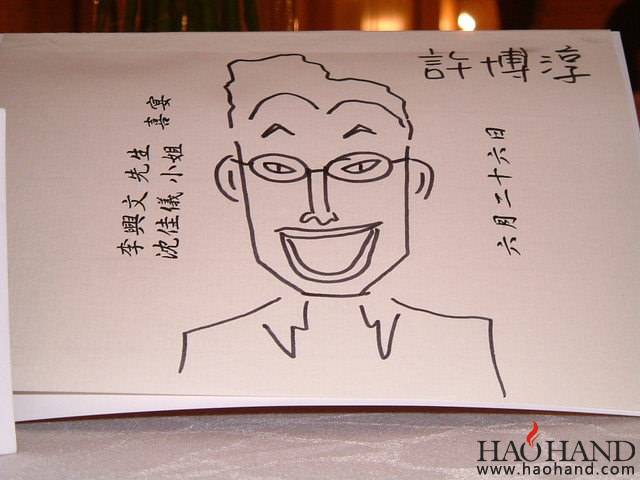 許博淳
李興文 先生 喜宴
沈佳儀 小姐
六月二十六日
HAOHAND
www.haohand.com